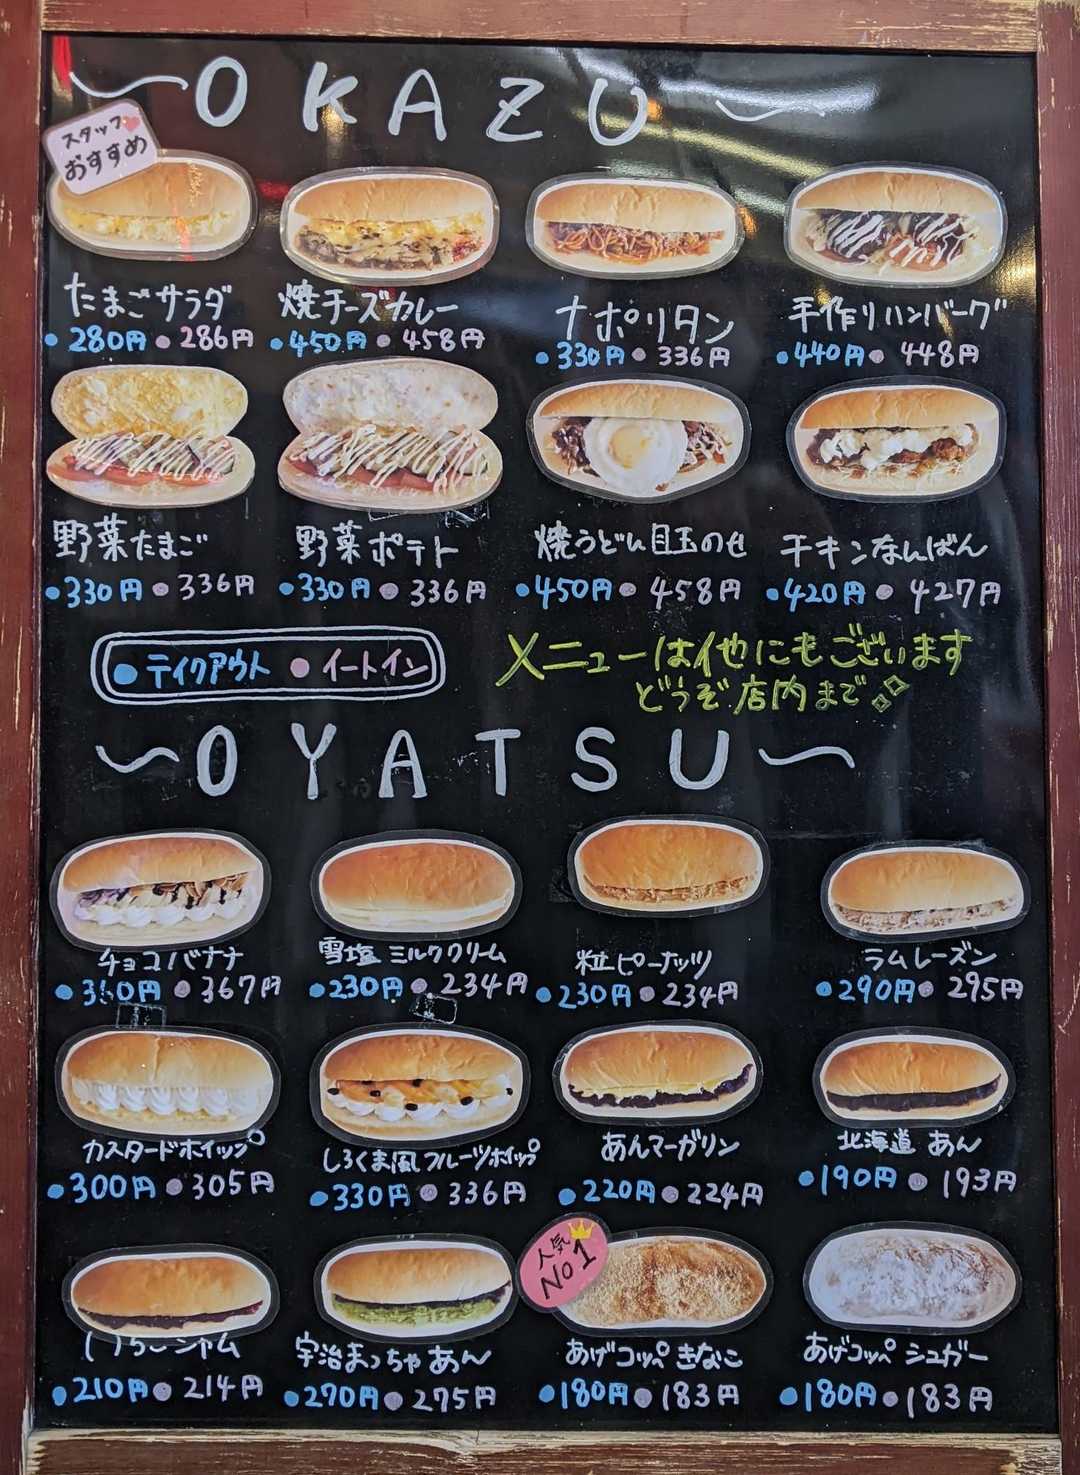 ～OKAZU～
スタッフ
おすすめ
たまごサラダ 焼チーズカレー ナポリタン 手作りハンバーグ
●280円 ●286円 ●450円 ●458円 ●330円 ●336円 ●440円 ●448円
野菜たまご 野菜ポテト 焼うどん目玉のせ チキンなんばん
●330円 ●336円 ●330円 ●336円 ●450円 ●458円 ●420円 ●427円
●テイクアウト ●イートイン
メニューは他にもございます
どうぞ店内まで
～OYATSU～
チョコバナナ 雪塩ミルククリーム 粒ピーナッツ ラムレーズン
●360円 ●367円 ●230円 ●234円 ●230円 ●234円 ●290円 ●295円
カスタードホイップ しろくま風フルーツホイップ あんマーガリン 北海道あん
●300円 ●305円 ●330円 ●336円 ●220円 ●224円 ●190円 ●193円
人気
No1
いちごジャム 宇治まっちゃあん あげコッペきなこ あげコッペシュガー
●210円 ●214円 ●270円 ●275円 ●180円 ●183円 ●180円 ●183円